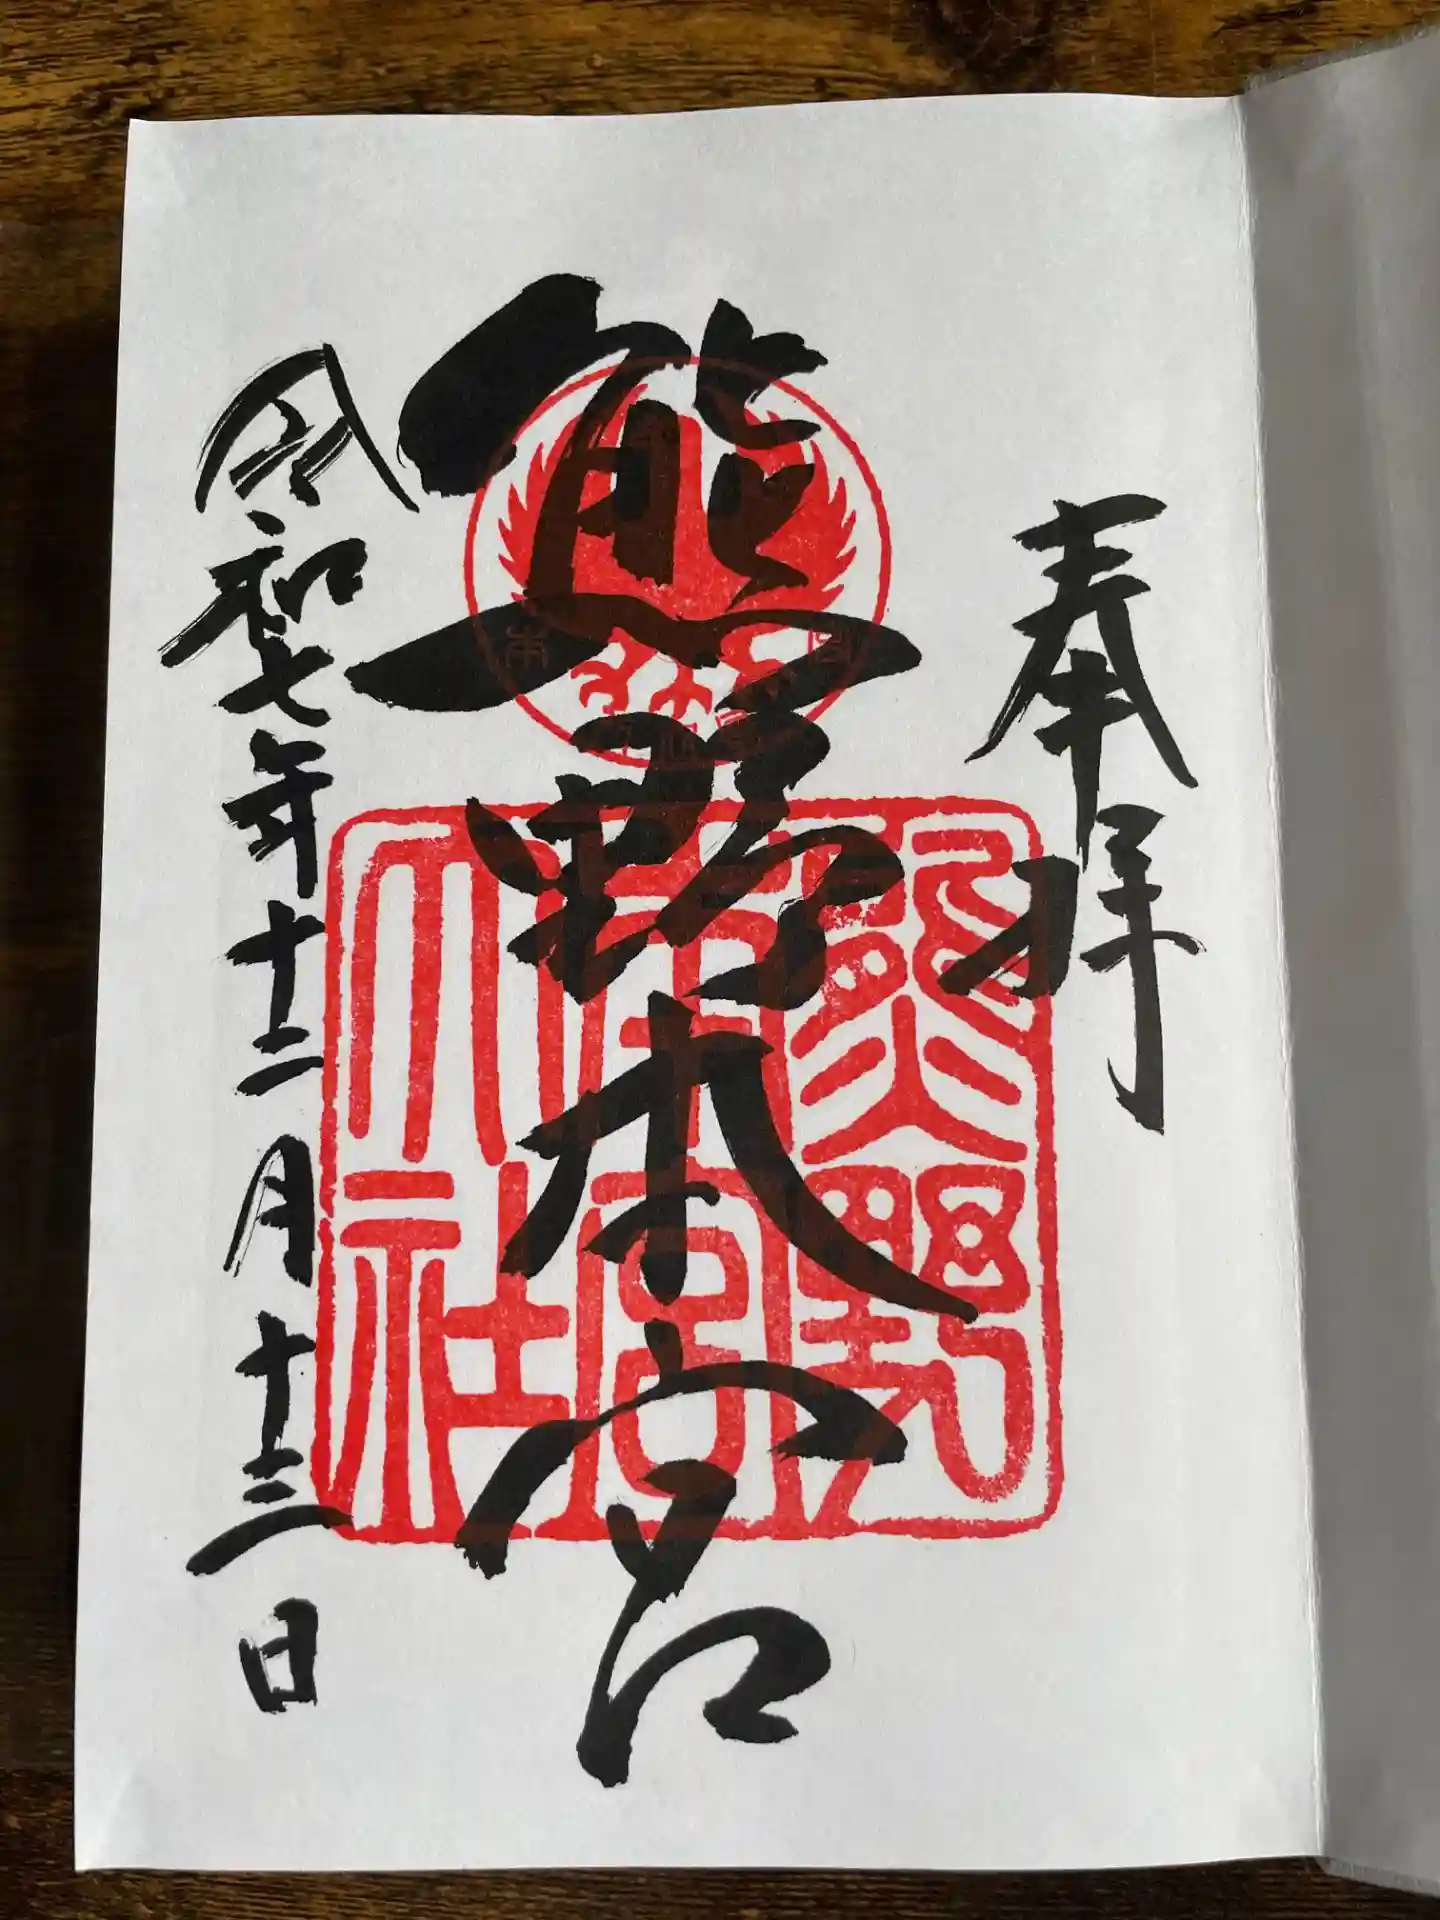 奉拝
熊野本宮
熊野
本宮
大社
令和七年十二月十三日